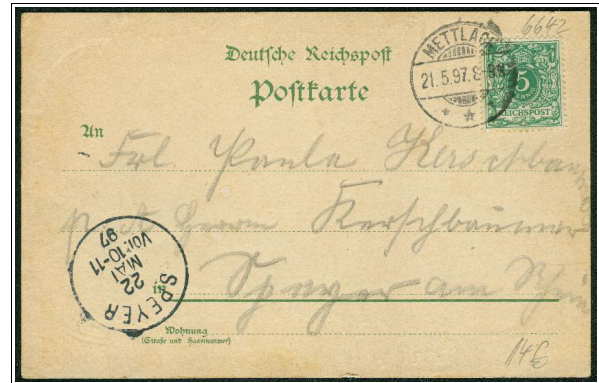 6642
Deutsche Reichspost
Postkarte
METTLACH
21.5.97.8-
5
REICHSPOST
An
Frl. Paula Kerschbaumer
Herrn Kerschbaumer
in Speyer am Rhein
SPEYER
22
MAI
Vor.10-11
97
Wohnung
(Straße und Hausnummer)